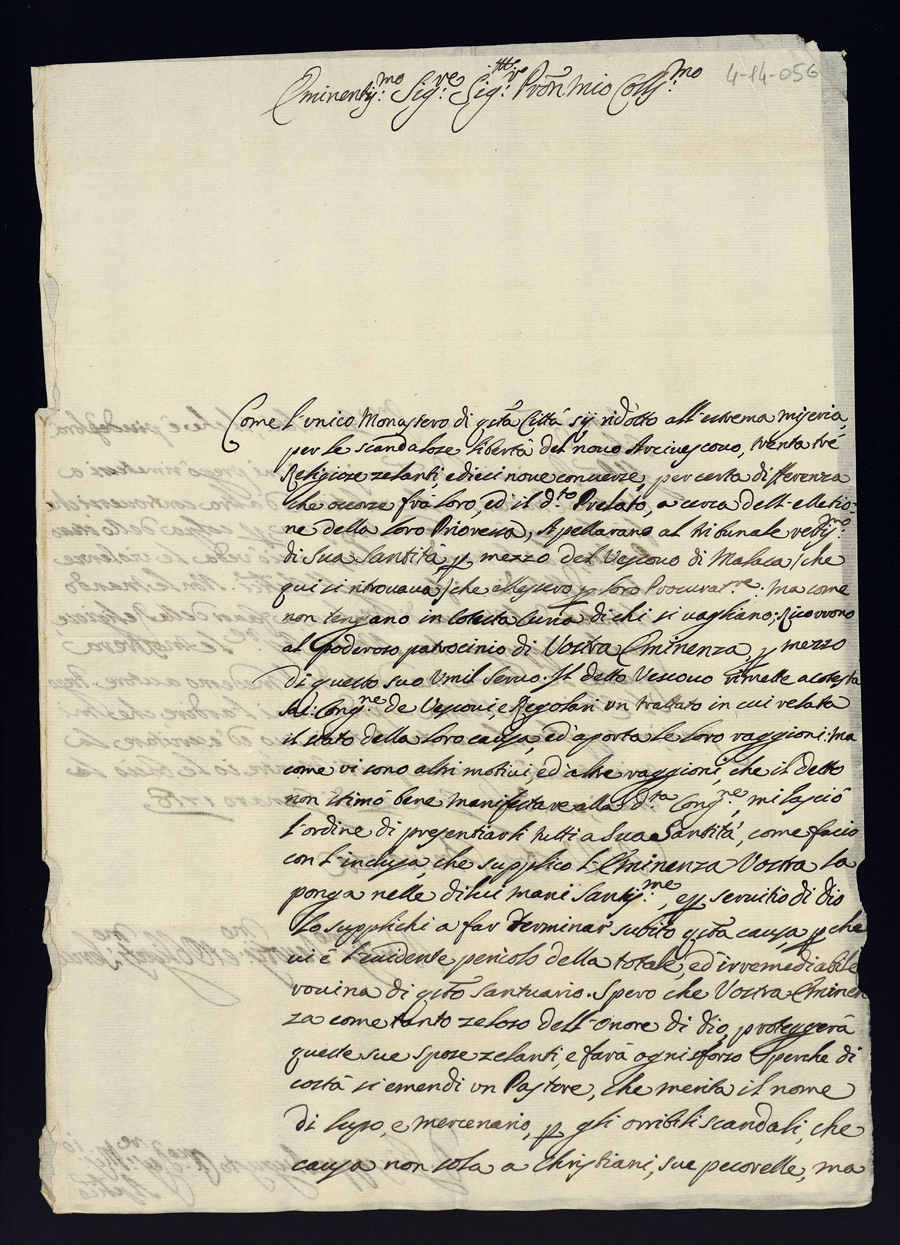 4-14-056
Eminentiss:mo Sig:re Sig:re Prõn mio Coll:mo
Come l'unico Monastero di q̃sta Città sij ridotto all'estrema miseria,
per le scandalose libertà del novo Arcivescovo, trenta trè
Religiose zelanti, e dieci nove converse, per certa differenza
che occorse frà loro, ed il d.to Prelato, a circa dell'elletio-
ne della loro Prioressa, Appellarano al tribunale rettiss:mo
di Sua Santità, p mezzo del Vescovo di Malaca /che
qui si ritrovava/ che ellessero p loro Procurat.re; ma come
non tengano in cotesta Curia di chi si vagliano; Ricorrono
al Poderoso patrocinio di Vostra Eminenza, p mezzo
di questo suo Umil servo. Il detto Vescovo rimette a cotesta
Sac: Cong.ne de Vescovi, e Regolari un trattato in cui relata
il stato della loro causa, ed'aporta le loro raggioni: ma
come vi sono altri motivi, ed'altre raggioni, che il detto
non istimò bene manifestare alla d.ta Cong.ne, mi lasciò
l'ordine di presentiarli tutti a Sua Santità, come facio
con l'inclusa, che supplico l'Eminenza Vostra la
ponga nelle di lui mani Santiss:me, e p servitio di Dio
lo supplichi a far terminar subito q̃sta causa, p che
vi è l'evidente pericolo della totale, ed'irremediabile
rovina di q̃sto santuario. Spero che Vostra Eminen
za come tanto zeloso dell'onore di Dio, proteggerà
queste sue spose zelanti, e farà ogni sforzo perche di
costà si emendi un Pastore, che merita il nome
di lupo, e mercenario, p gli orribili scandali, che
causa non sola a Christiani, sue pecorelle, ma